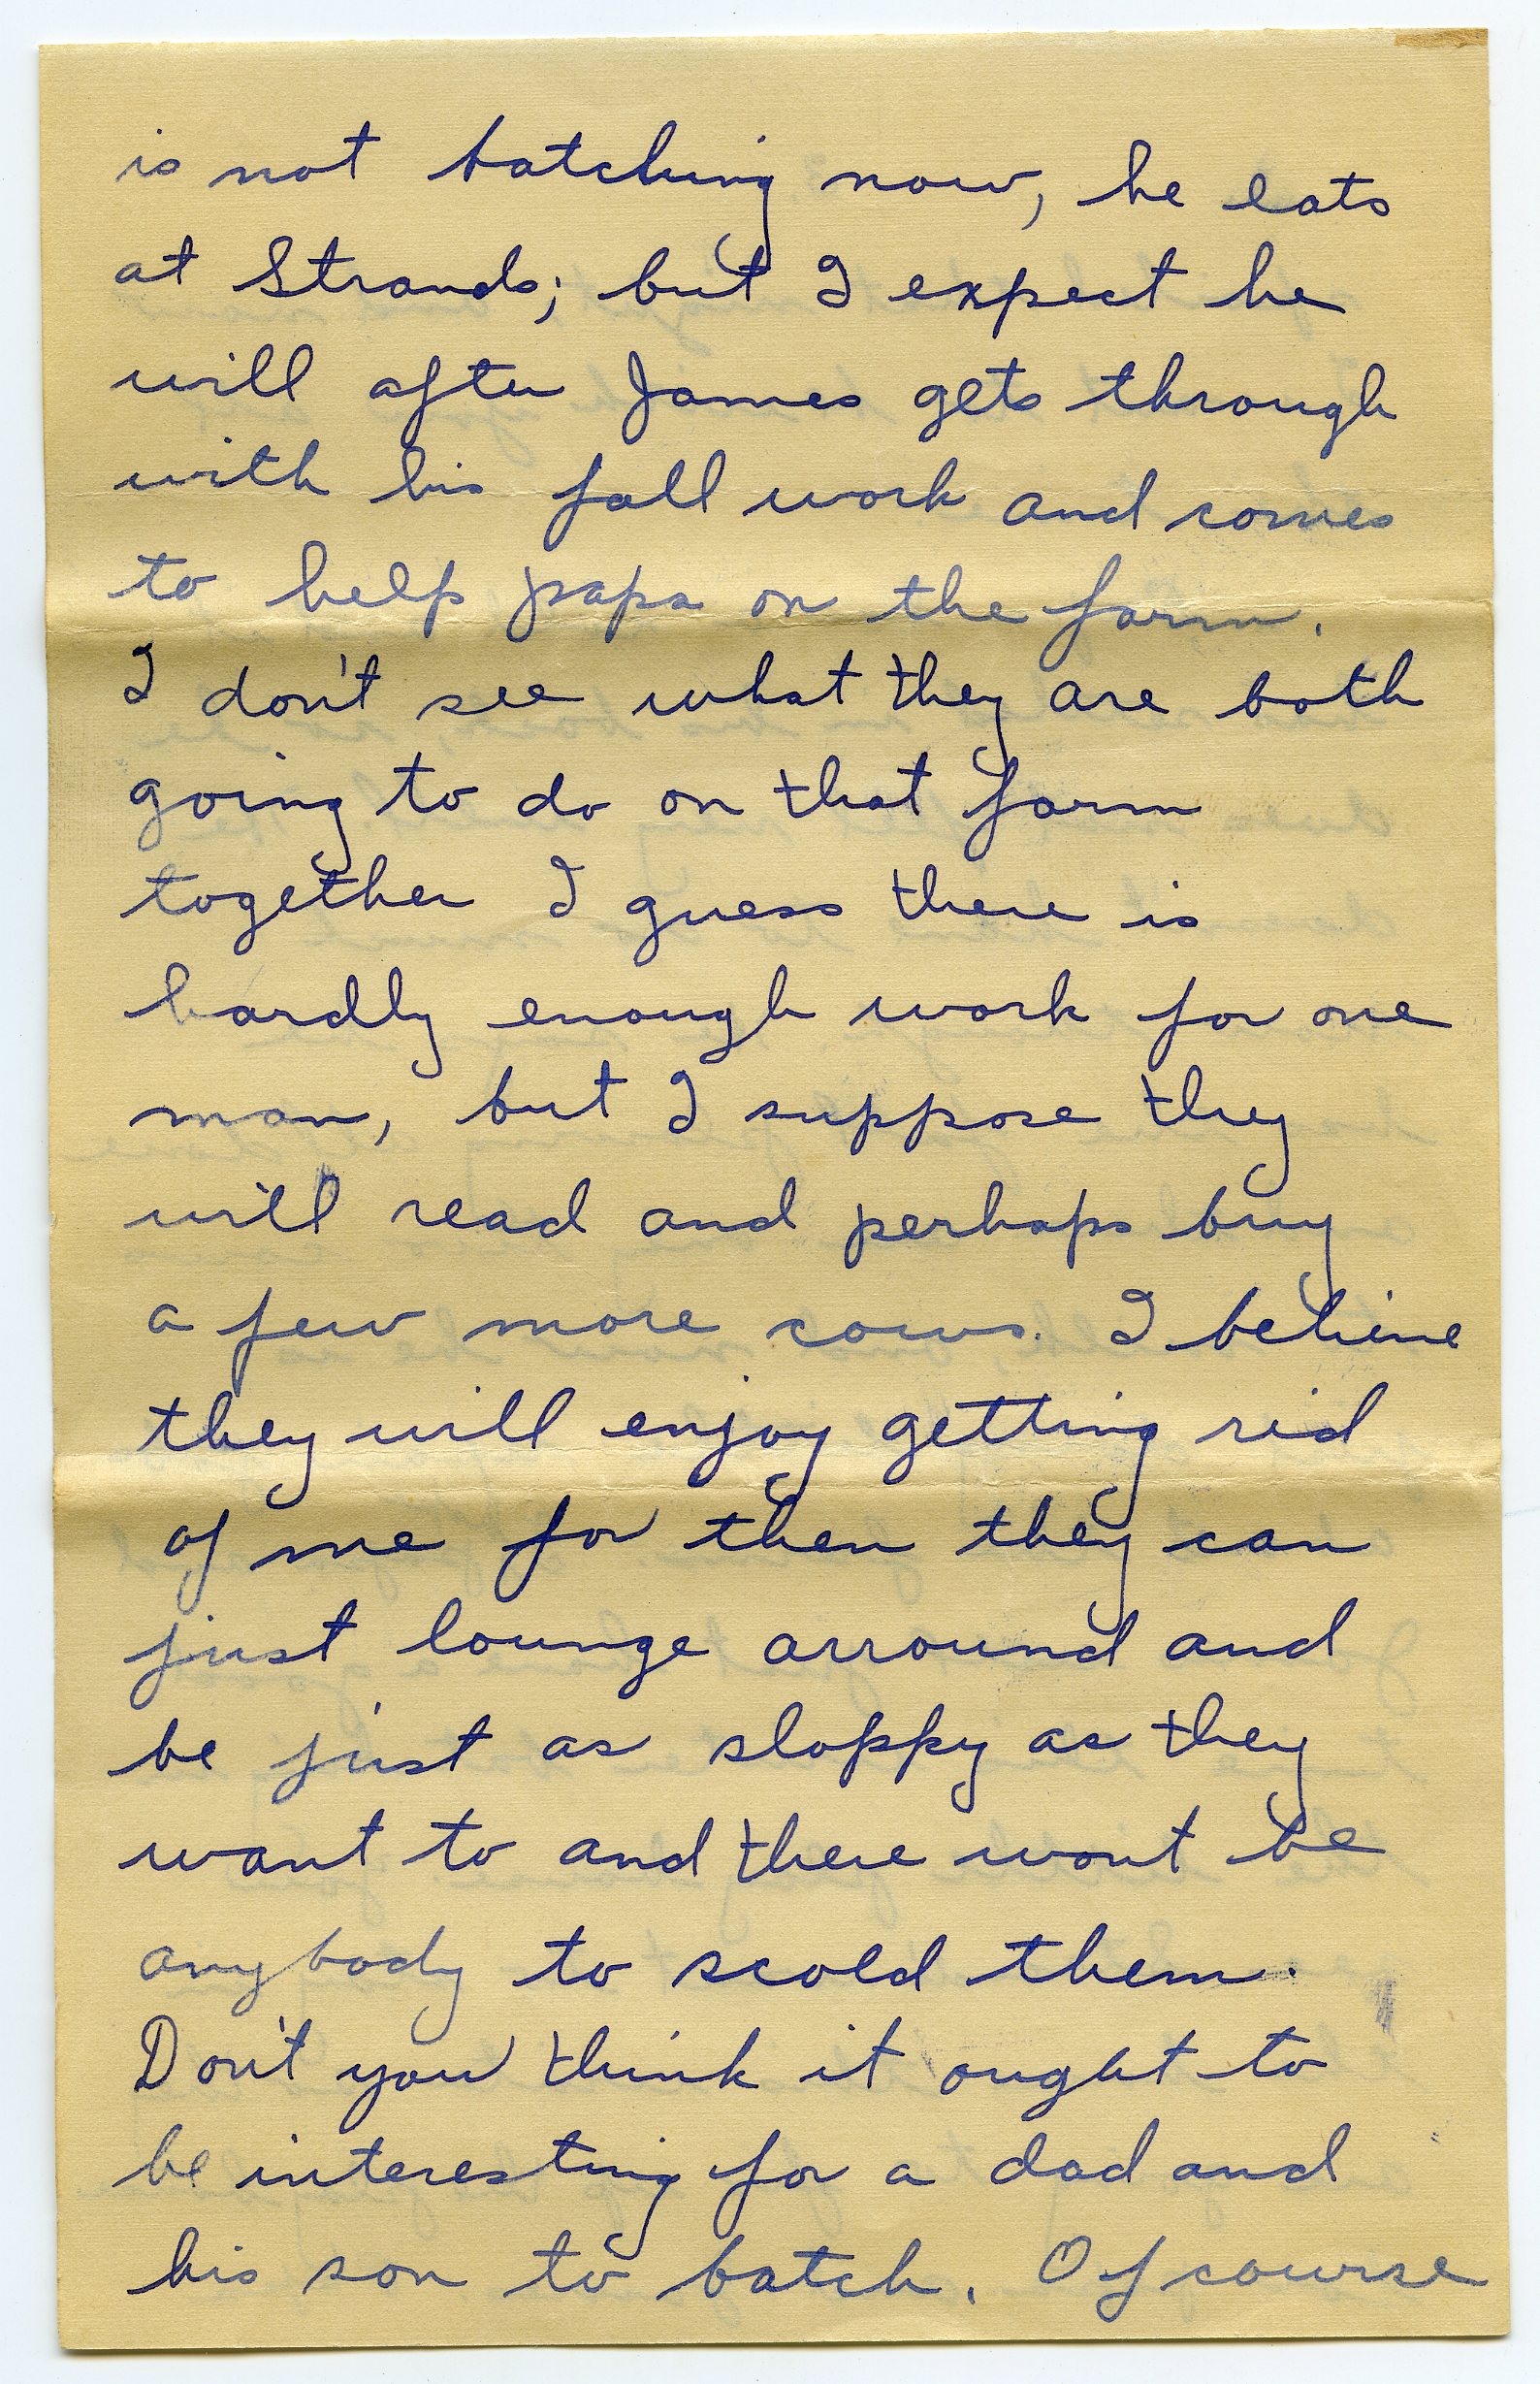 is not batching now, he eats
at Strands; but I expect he
will after James gets through
with his fall work and comes
to help papa on the farm.
I don't see what they are both
going to do on that farm
together I guess there is
hardly enough work for one
man, but I suppose they
will read and perhaps buy
a few more cows. I believe
they will enjoy getting rid
of me for then they can
just lounge arround and
be just as sloppy as they
want to and there wont be
anybody to scold them.
Don't you think it ought to
be interesting for a dad and
his son to batch. Of course